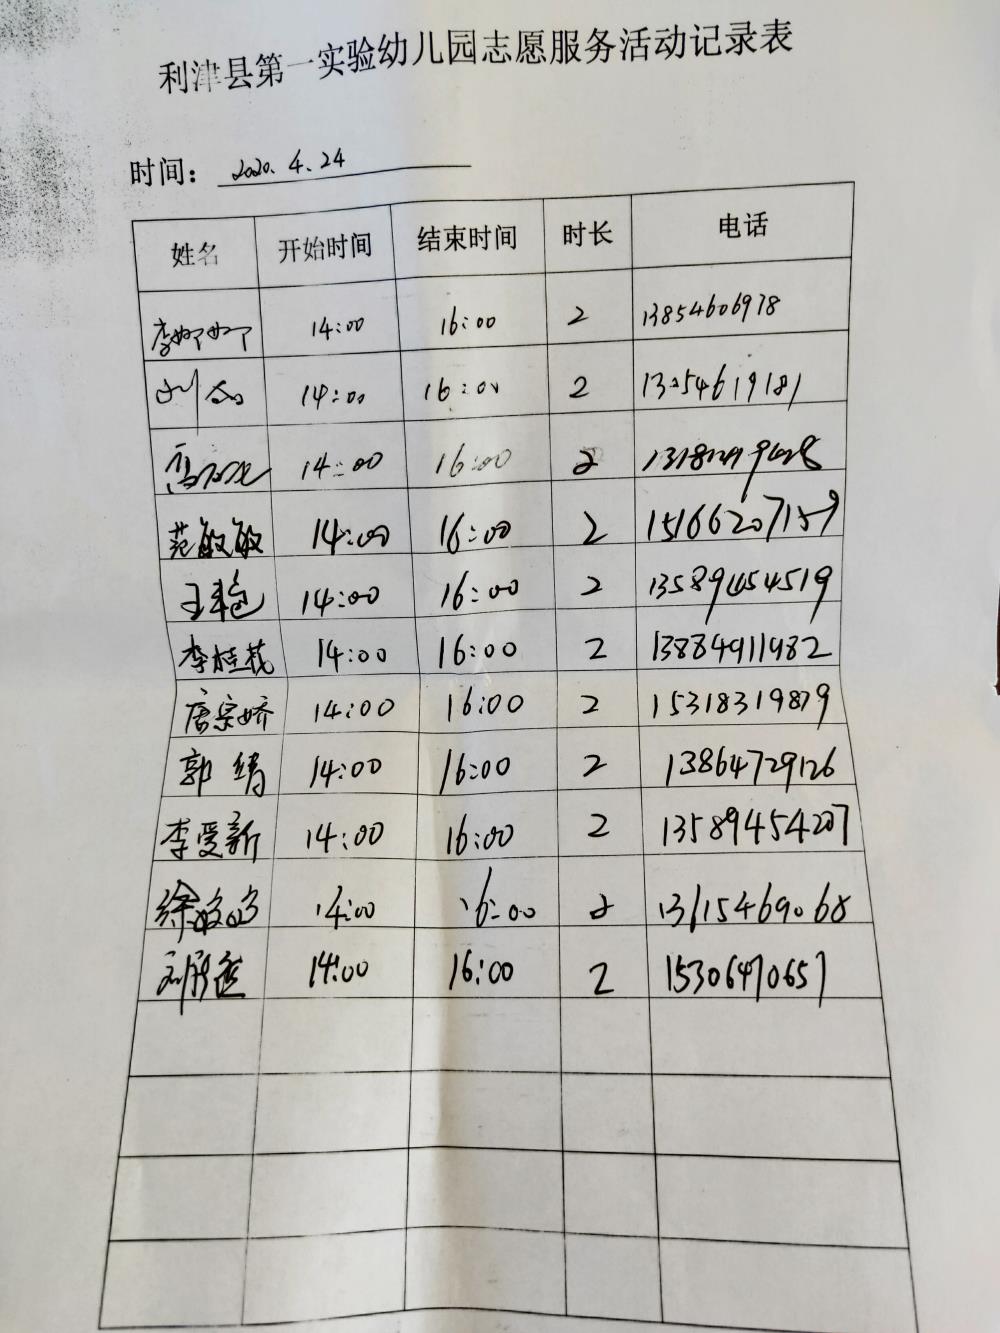 利津县第一实验幼儿园志愿服务活动记录表
时间： 2020.4.24
姓名 开始时间 结束时间 时长 电话
李娜娜 14:00 16:00 2 13854606978
刘 14:00 16:00 2 13054619181
14:00 16:00 2
范敏敏 14:00 16:00 2 15166207159
王艳 14:00 16:00 2 13589454519
李桂花 14:00 16:00 2 13884911982
唐宗娇 14:00 16:00 2 15318319879
郭靖 14:00 16:00 2 13864729126
李爱新 14:00 16:00 2 13589454207
徐 14:00 16:00 2 13615469068
刘 14:00 16:00 2 15306470657